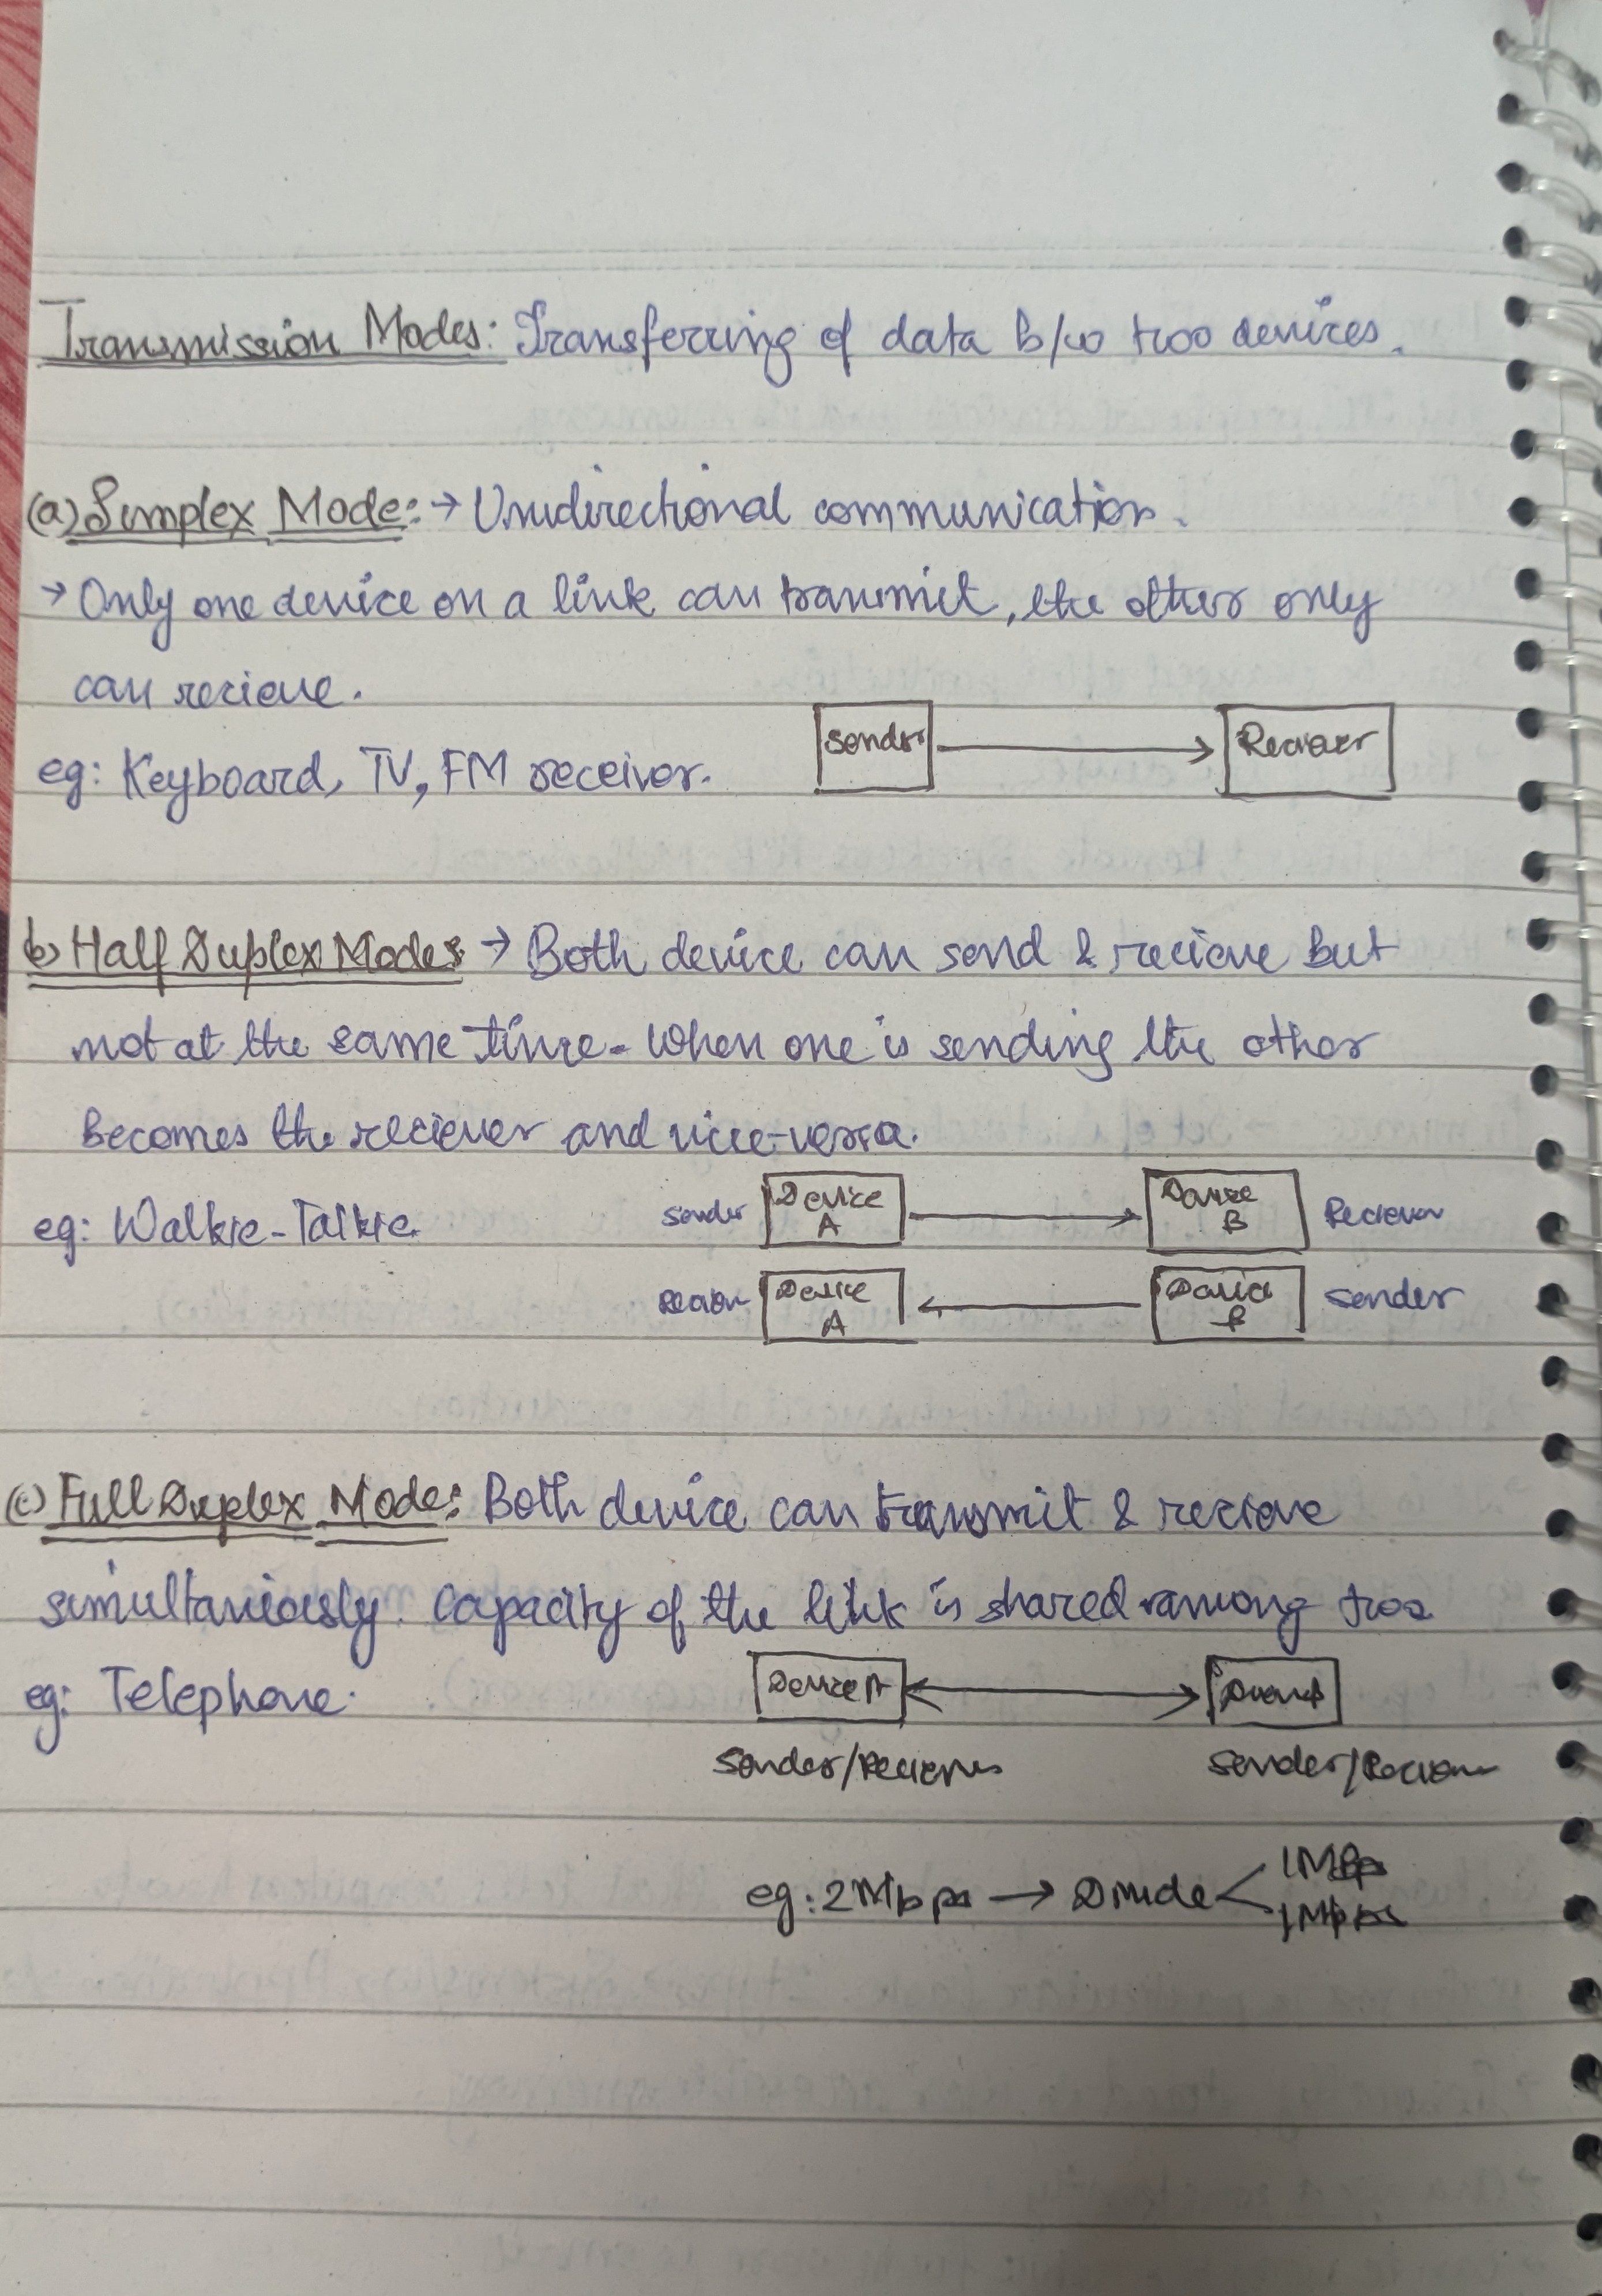 Transmission Modes: Transferring of data b/w two devices.
(a) Simplex Mode: → Unidirectional communication.
→ Only one device on a link can transmit, the other only
can recieve.
Sender Reciever
eg: Keyboard, TV, FM receiver.
b) Half Duplex Modes → Both device can send & recieve but
not at the same time. When one is sending the other
becomes the reciever and vice-versa.
eg: Walkie-Talkie
Sender Device A Device B Reciever
Device A Device B Sender
(c) Full Duplex Mode: Both device can transmit & recieve
simultaniously. Capacity of the link is shared among two
eg: Telephone.
Device A
Sender/Reciever Sender/Reciever
eg: 2Mbps → Divide < 1Mbps
1Mbps